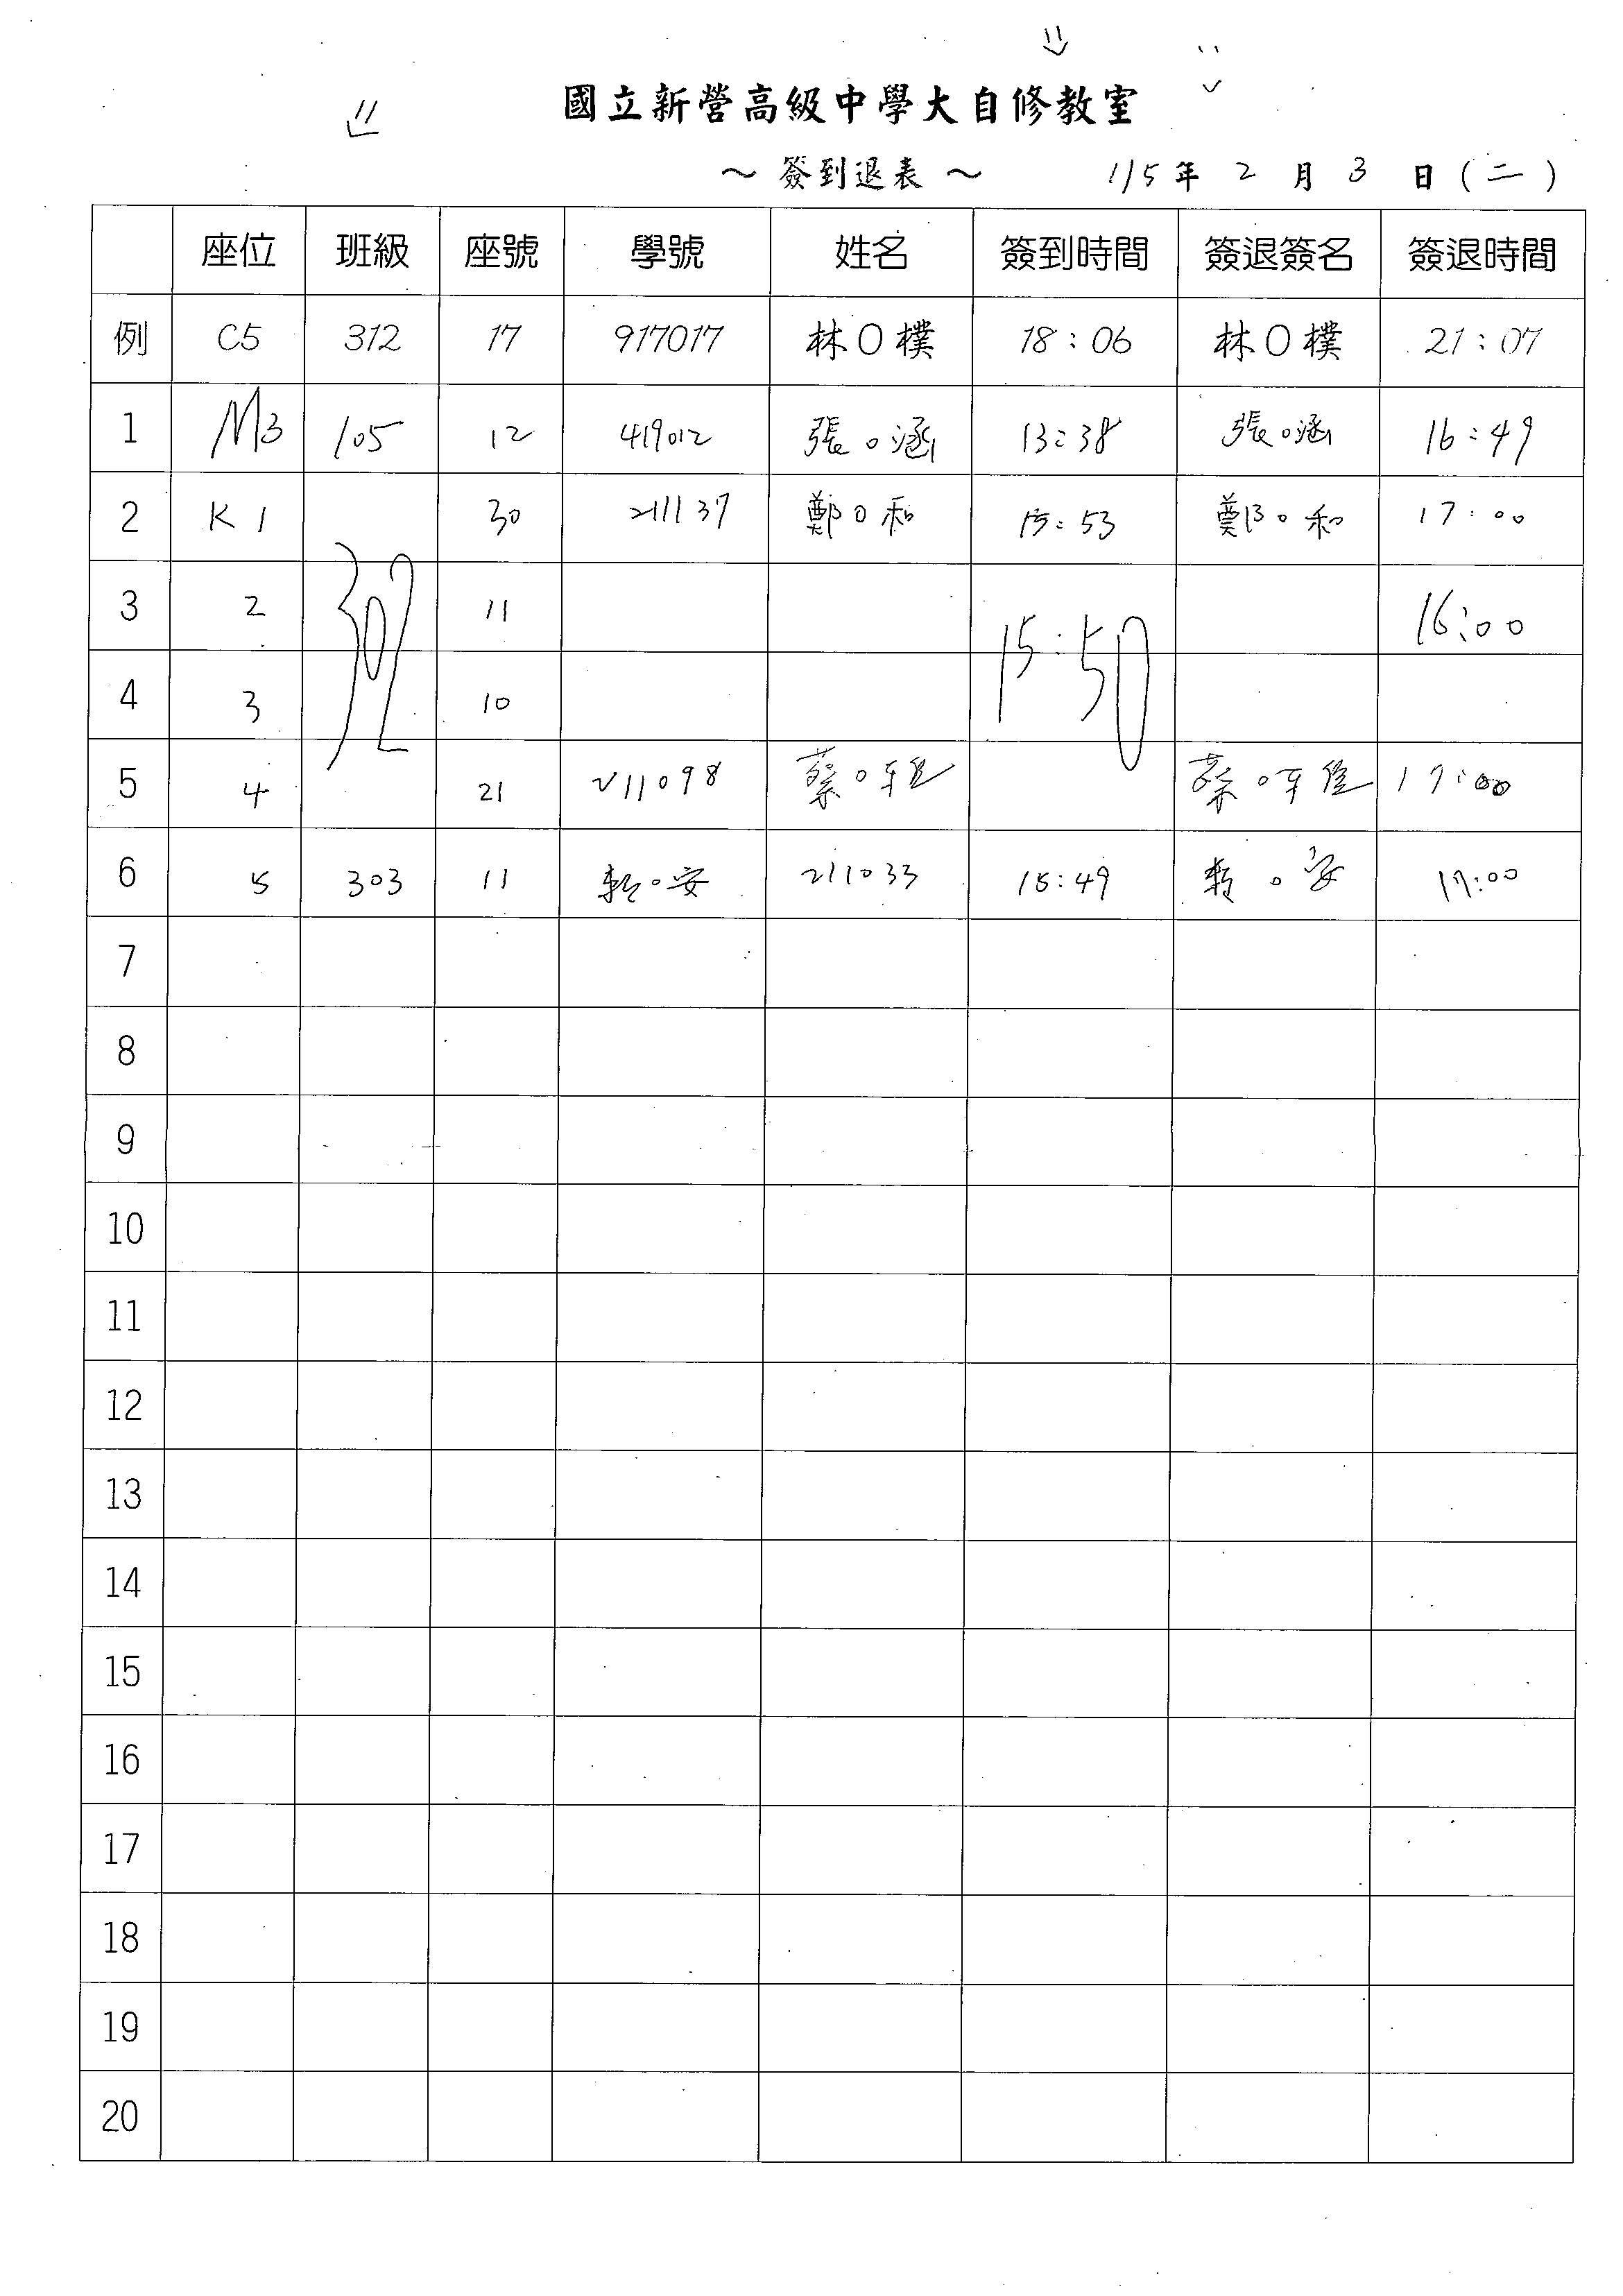 國立新營高級中學大自修教室
～ 簽到退表 ～ 115 年 2 月 3 日 (二)
座位 班級 座號 學號 姓名 簽到時間 簽退簽名 簽退時間
例 C5 312 17 917017 林O樸 18:06 林O樸 21:07
1 M3 105 12 419012 張O涵 13:38 張O涵 16:49
2 K1 30 211137 鄭O和 15:53 鄭O和 17:00
3 2 302 11 15:50 16:00
4 3 10
5 4 21 211098 蔡O 蔡O 17:00
6 5 303 11 O安 211033 15:49 O安 17:00
7
8
9
10
11
12
13
14
15
16
17
18
19
20